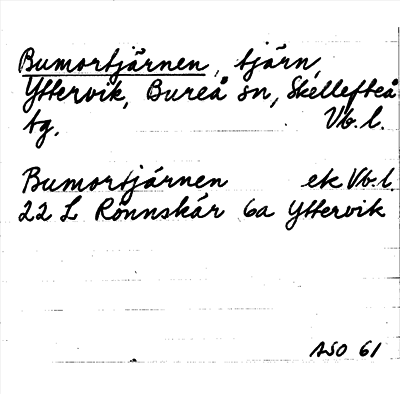 Bumortjärnen, tjärn,
Yttervik, Bureå sn, Skellefteå
tg. Vb. l.
Bumortjärnen ek Vb. l.
22 L Rönnskär 6a Yttervik
ASO 61